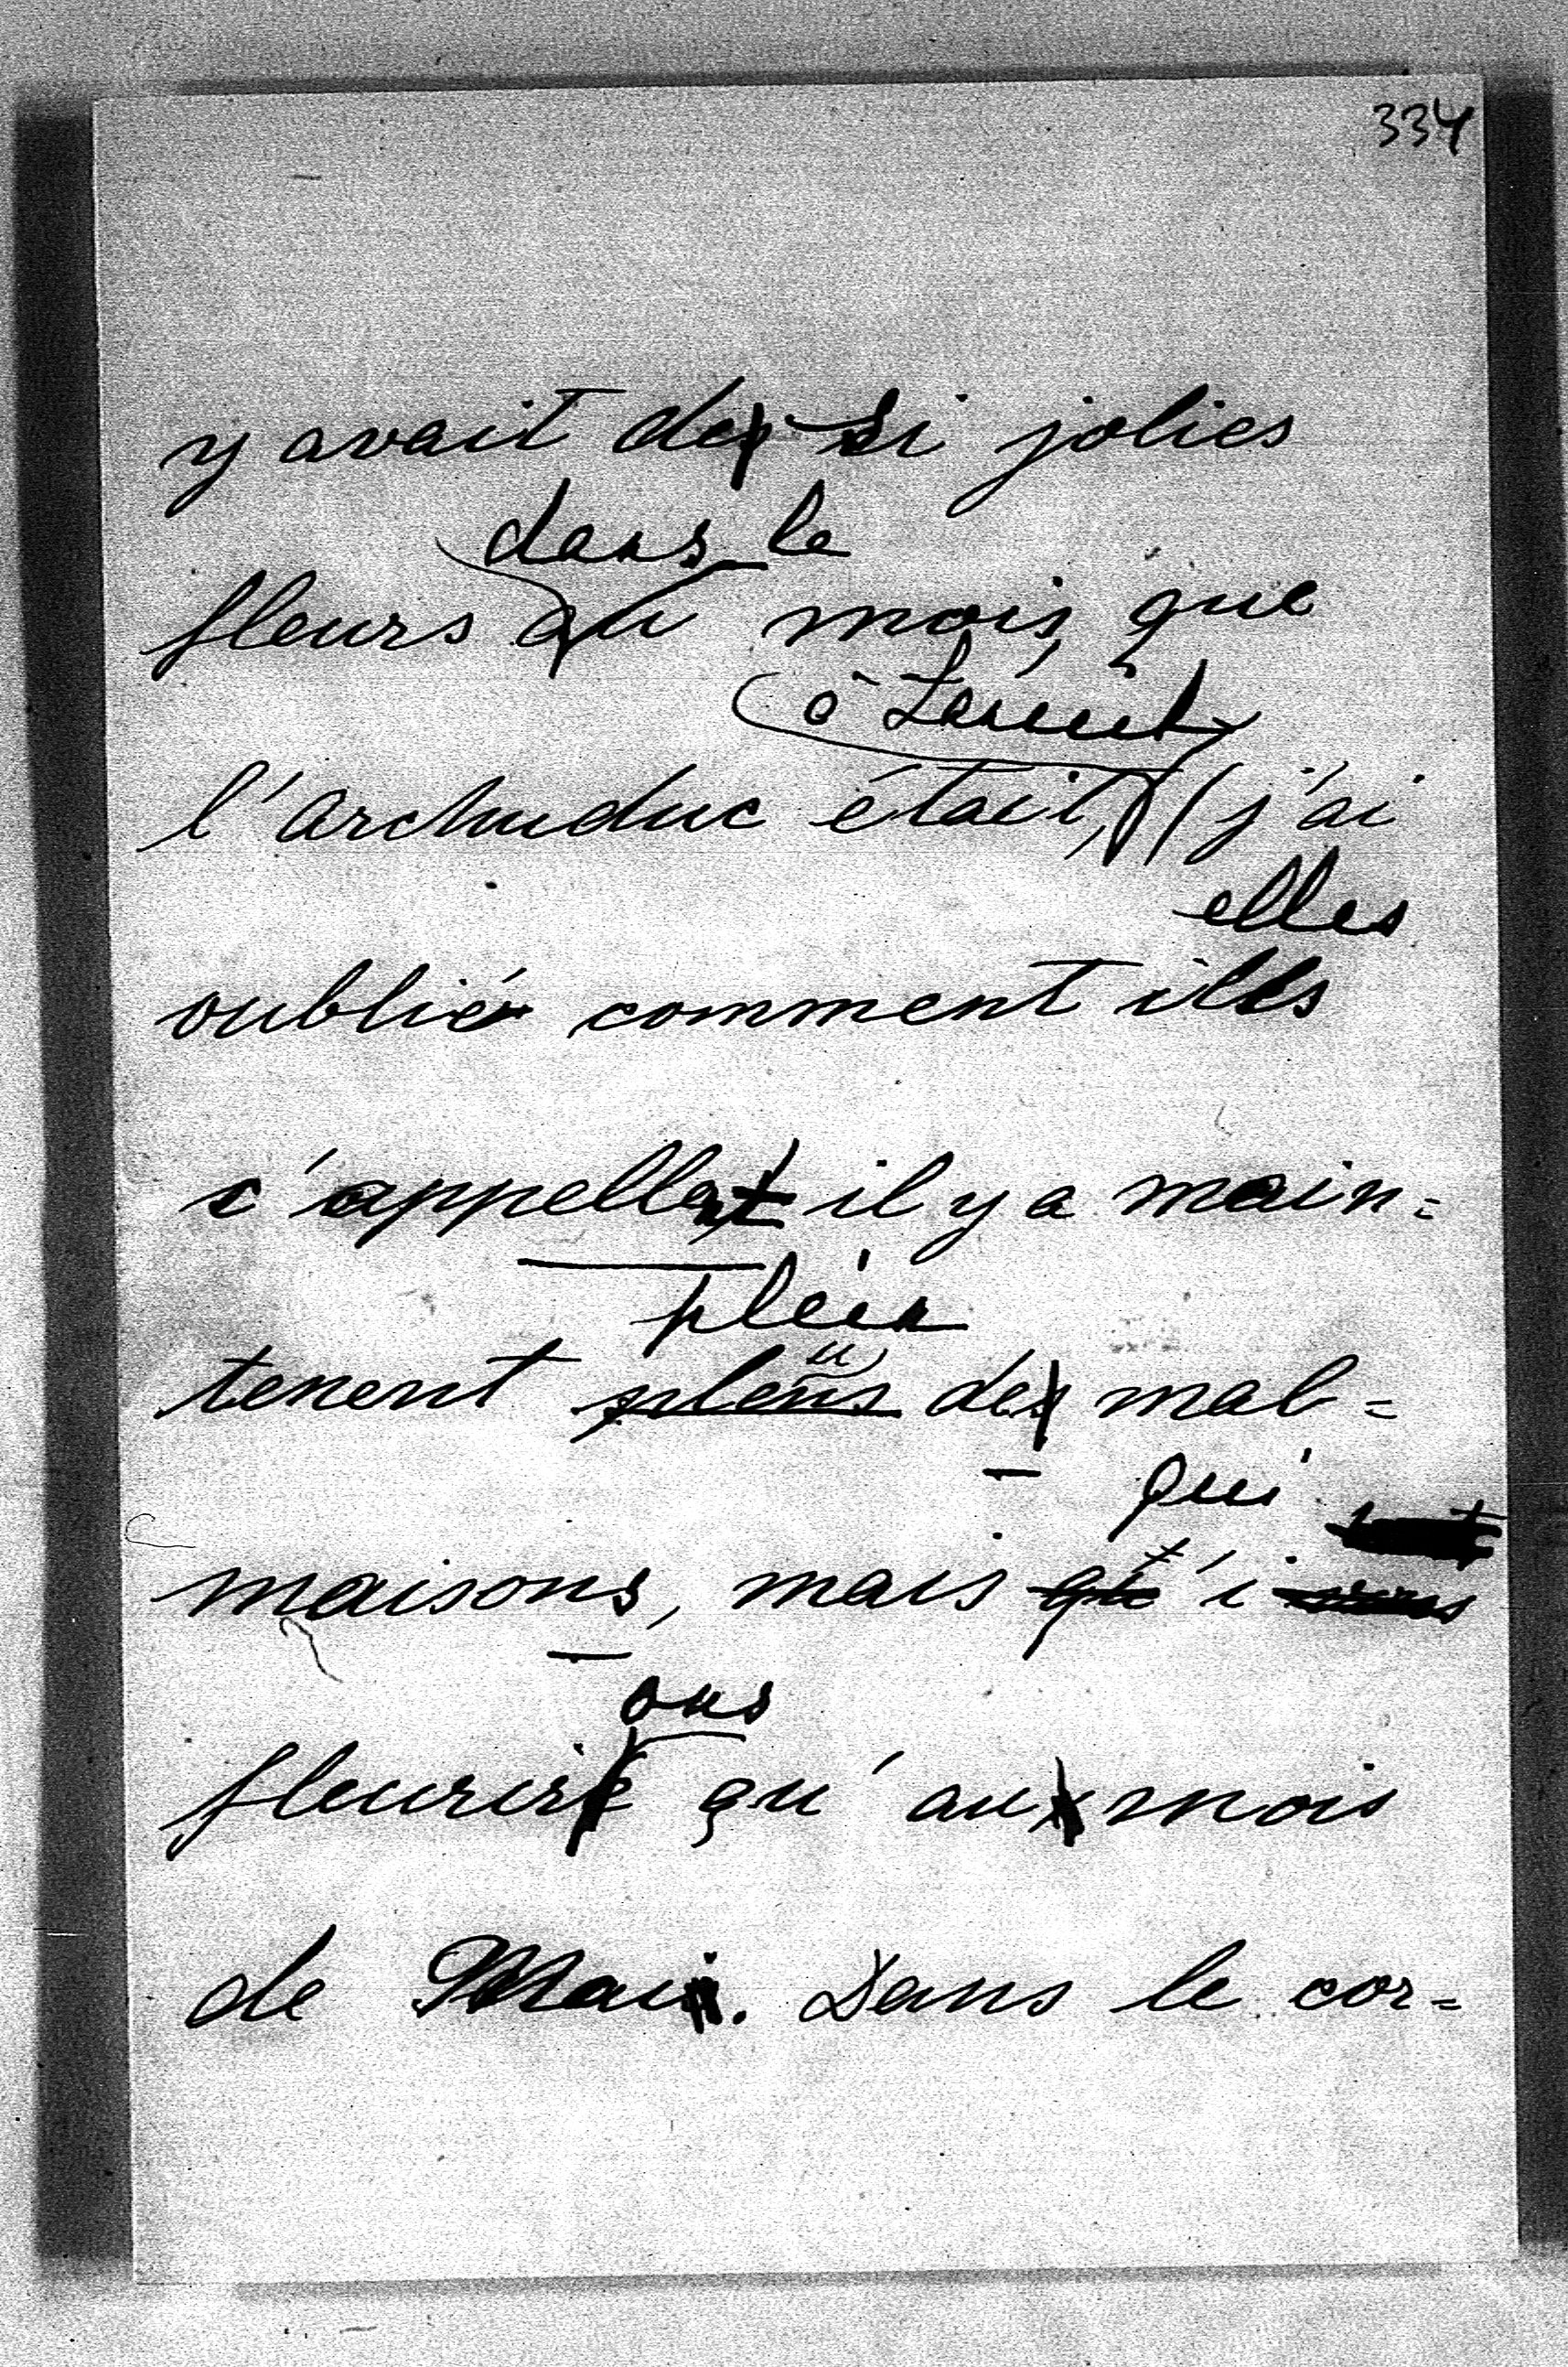 334
y avait des si jolies
dans le
fleurs au mois, que
à Zarice
l'archuduc était, j'ai
elles
oublié comment ills
s'appellent il y a main=
plein
tenent plens des mal=
qui
maisons, mais qu'i
ons
fleurire qu'aux mois
de Mai. Dans le cor=